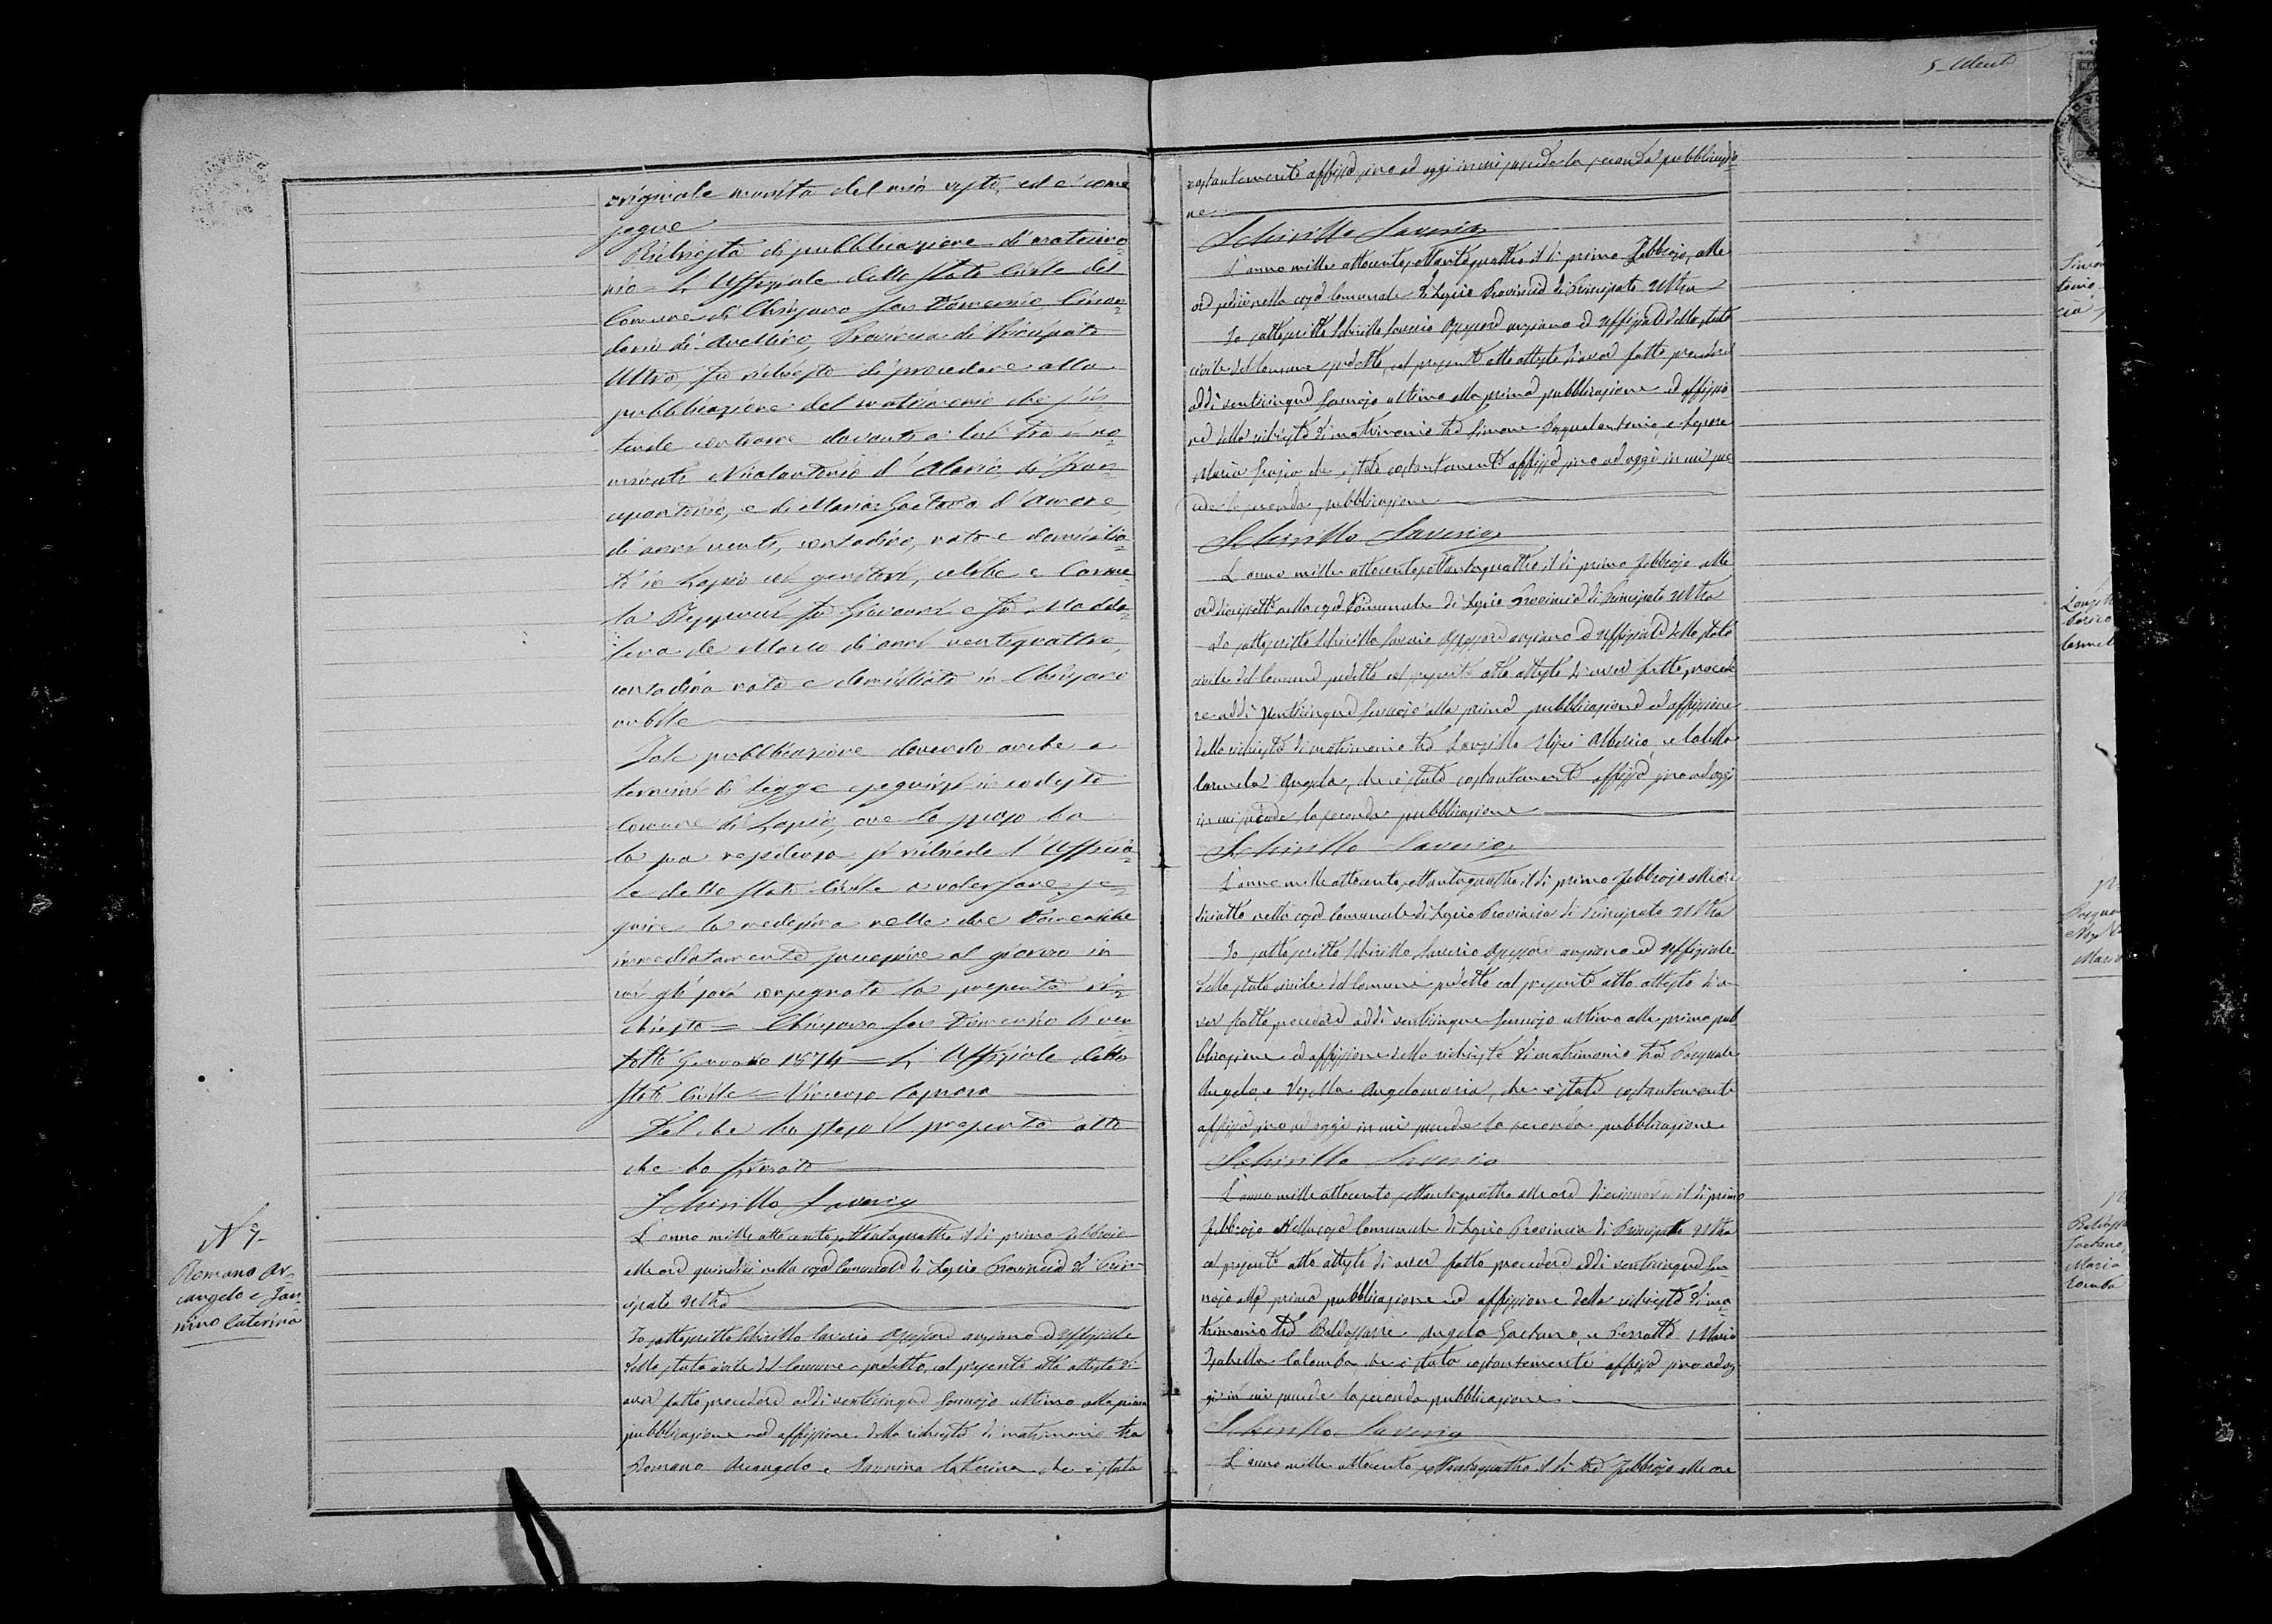 originale munita del mio visto, ed è come
segue
Richiesta di pubblicazione di matrimo=
nio = L'Uffiziale dello Stato Civile del
Comune di Chiusano San Domenico Circon=
dario di Avellino, Provincia di Principato
Ultra, fa richiesta di procedere alla
pubblicazione del matrimonio che s'in=
tende contrarre davanti a lui tra i no=
minati Nicolantonio d'Alasio, di Fran=
cescantonio, e di Maria Gaetana d'Amore,
di anni venti, contadino, nato e domicilia=
to in Lapio coi genitori, celibe e Carme=
la fu Giovanni e fu Madda=
lena de Marco di anni ventiquattro,
contadina nata e domiciliata in Chiusano
nubile
Tale pubblicazione dovendo anche a
termini di legge eseguirsi in codesto
Comune di Lapio, ove lo sposo ha
la sua residenza si richiede l'Uffizia=
le dello Stato Civile a voler fare ese=
guire la medesima nelle due Domeniche
immediatamente successive al giorno in
cui gli sarà consegnata la presente ri=
chiesta = Chiusano San Domenico li ven
totto Gennaio 1874 = L'Uffiziale dello
Stato Civile = Vincenzo
Del che ho steso il presente atto
che ho firmato
Schirillo Saverio
L'anno mille ottocento settantaquattro il dì primo febbraio
alle ore quindici nella casa Comunale di Lapio Provincia di Prin=
cipato Ultra
Io sottoscritto Schirillo Saverio Assessore anziano ed Uffiziale
dello stato civile del Comune predetto, col presente atto attesto di
aver fatto procedere addì venticinque Gennajo ultimo alla prima
pubblicazione ed affissione della richiesta di matrimonio tra
Romano Arcangelo e Iannino Caterina che è stata
N 7
Romano Ar=
cangelo e Ian=
nino Caterina
costantemente affissa sino ad oggi in cui succede la seconda pubblicazio=
ne
Schirillo Saverio
L'anno mille ottocento settantaquattro il dì primo Febbrajo, alle
ore sedici nella casa Comunale di Lapio Provincia di Principato Ultra
Io sottoscritto Schirillo Saverio Assessore anziano ed Uffiziale dello stato
civile del Comune predetto, col presente atto attesto d'aver fatto procedere
addì venticinque Gennajo ultimo alla prima pubblicazione ed affissio
ne della richiesta di matrimonio tra Simone Pasqualantonio, e Lepore
Maria Grazia che è stata costantemente affissa sino ad oggi in cui suc
cede la seconda pubblicazione
Schirillo Saverio
L'anno mille ottocento settantaquattro il dì primo febbrajo alle
ore diciassette nella casa Comunale di Lapio Provincia di Principato Ultra
Io sottoscritto Schirillo Saverio Assessore anziano ed Uffiziale dello stato
civile del Comune predetto col presente atto attesto d'aver fatto procede
re addì venticinque Gennajo alla prima pubblicazione ed affissione
della richiesta di matrimonio tra Lanzillo Alberico, e
Carmela Angela, che è stata costantemente affissa sino ad oggi
in cui succede la seconda pubblicazione
Schirillo Saverio
L'anno mille ottocento settantaquattro il dì primo febbrajo alle ore
diciotto nella casa Comunale di Lapio Provincia di Principato Ultra
Io sottoscritto Schirillo Saverio Assessore anziano ed Uffiziale
dello stato civile del Comune predetto col presente atto attesto d'a=
ver fatto procedere addì venticinque Gennajo ultimo alla prima pub
blicazione ed affissione della richiesta di matrimonio tra Pasquale
Angelo, e Angelamaria, che è stata costantemente
affissa sino ad oggi in cui succede la seconda pubblicazione
Schirillo Saverio
L'anno mille ottocento settantaquattro alle ore diciannove il dì primo
febbrajo nella casa Comunale di Lapio Provincia di Principato Ultra
col presente atto attesto di aver fatto procedere addì venticinque Gen=
najo alla prima pubblicazione ed affissione della richiesta di ma=
trimonio tra Baldassarre Angelo Gaetano, e Maria
Isabella Colomba che è stata costantemente affissa sino ad og
gi in cui succede la seconda pubblicazione
Schirillo Saverio
L'anno mille ottocento settantaquattro il dì tre febbrajo alle ore